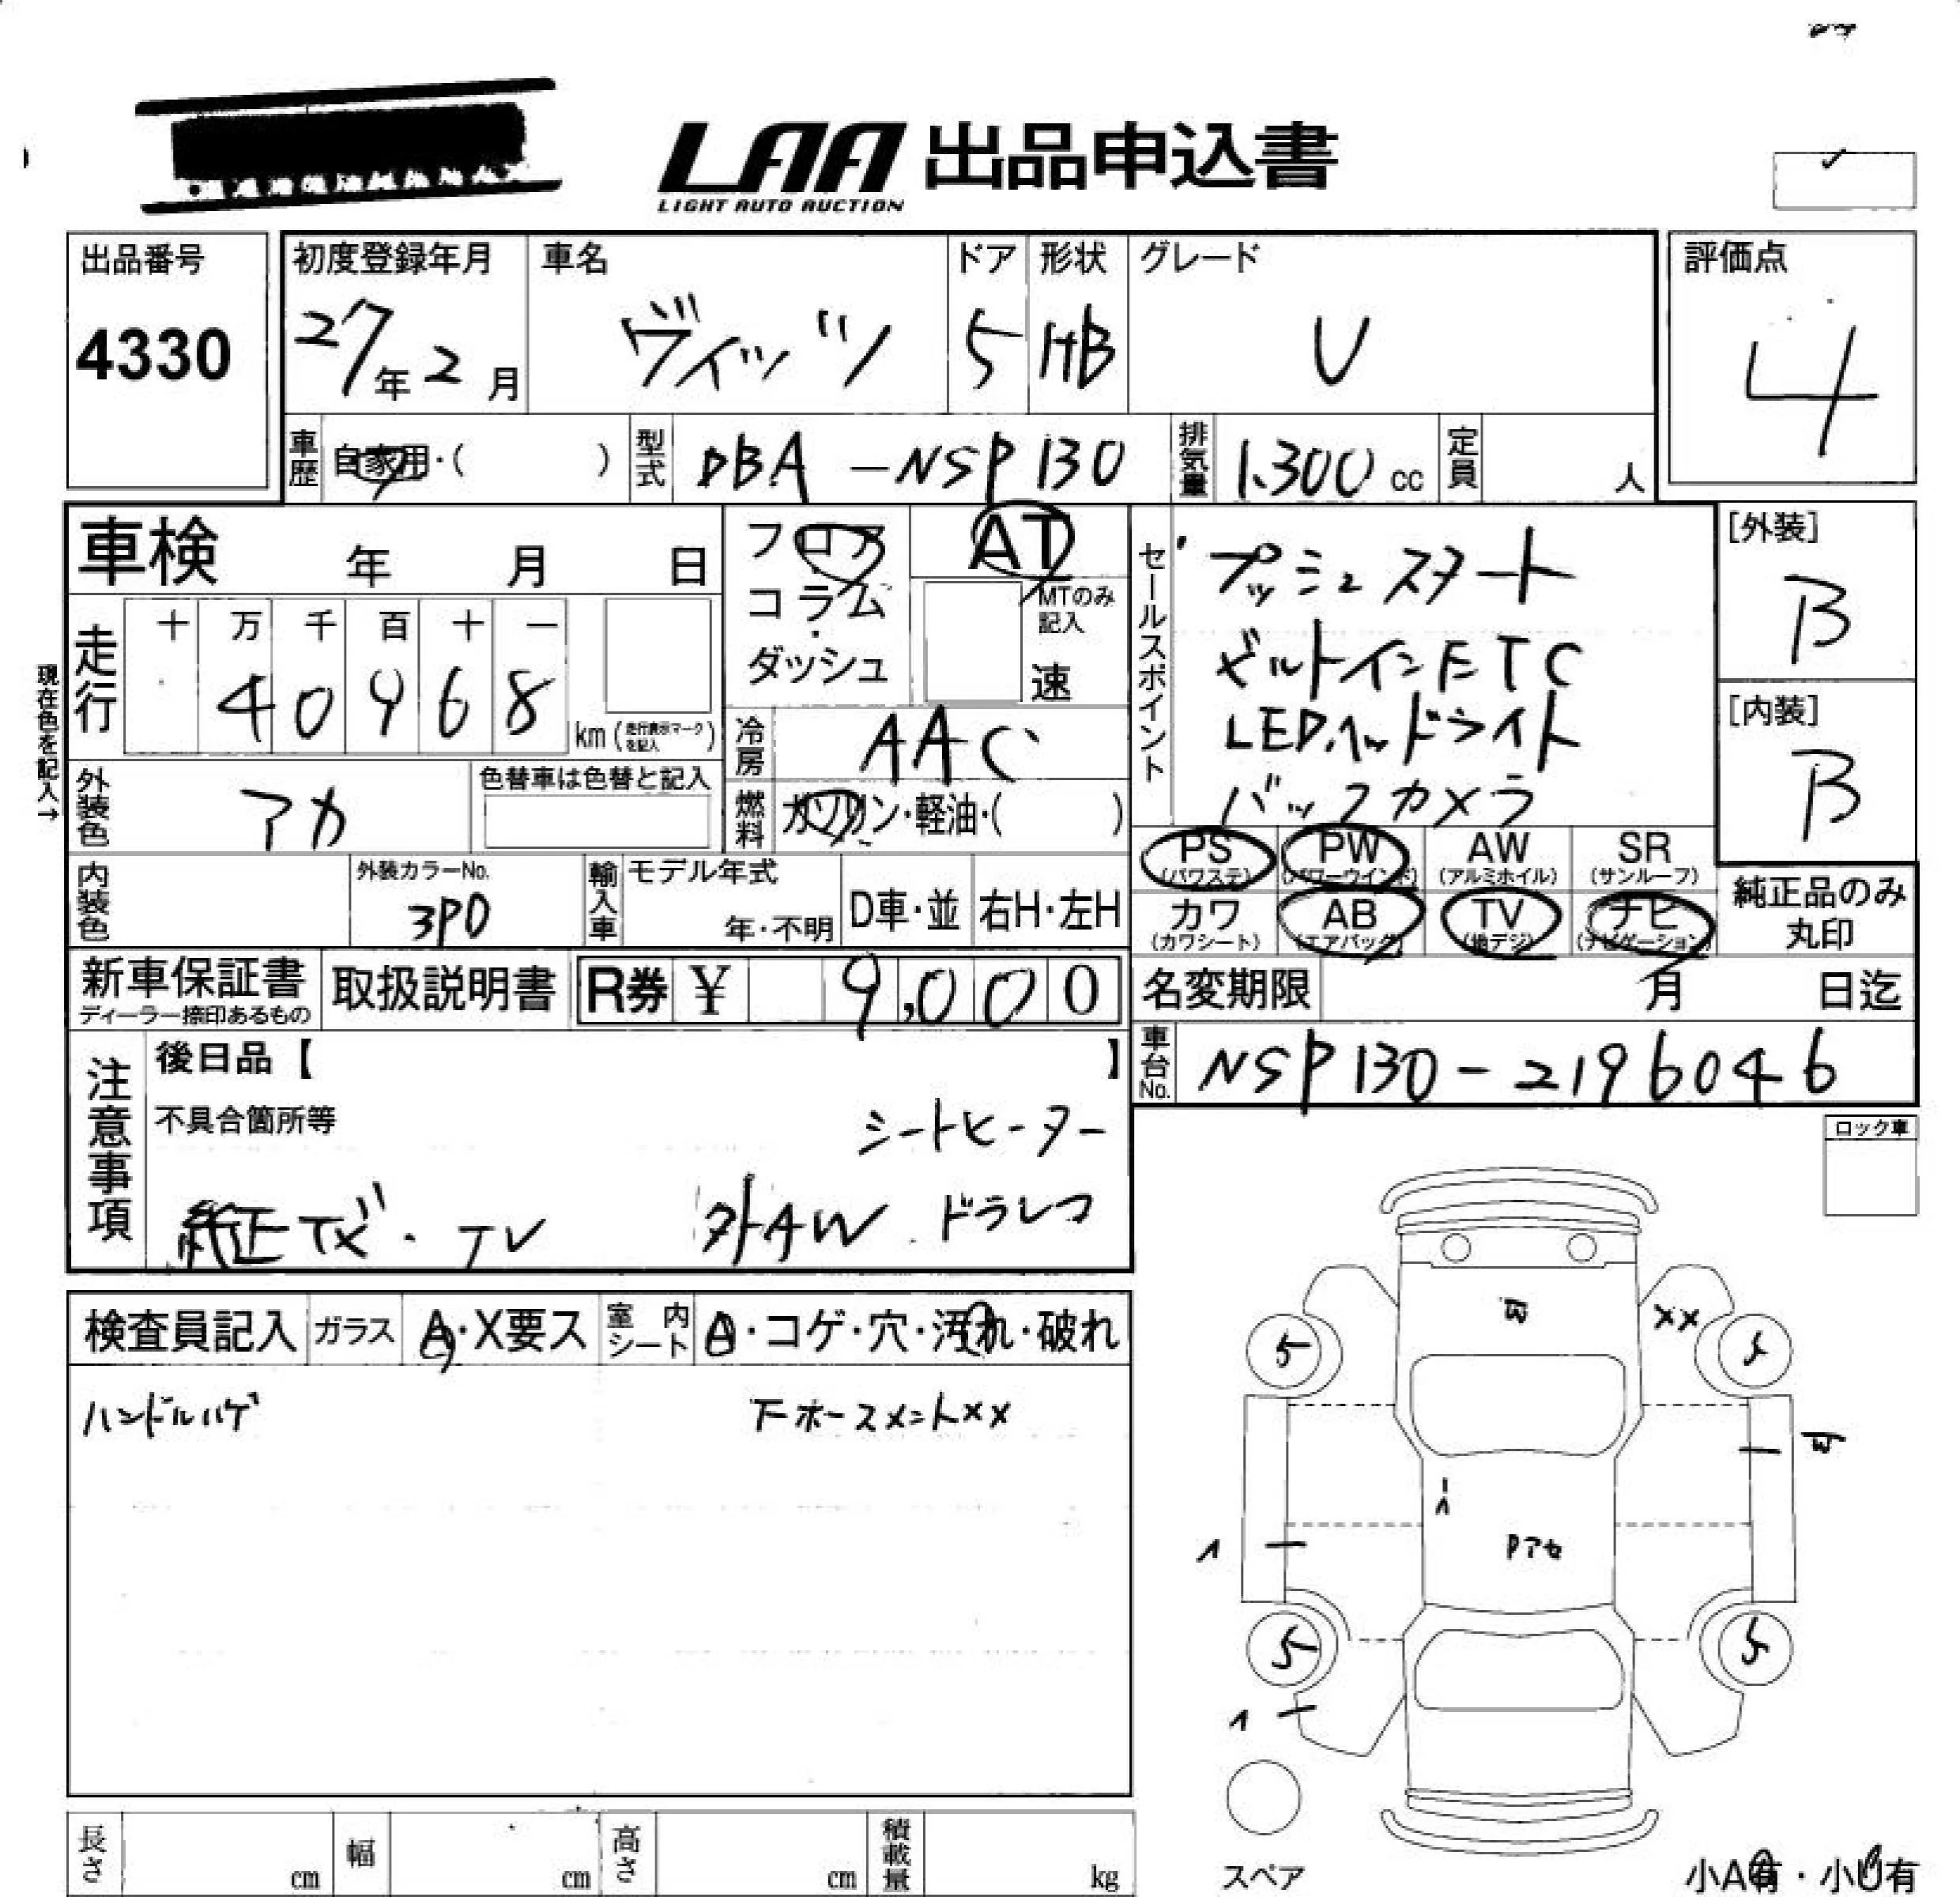 LAA 出品申込書
LIGHT AUTO AUCTION
出品番号
4330
初度登録年月
27年2月
車名
ヴィッツ
ドア
5
形状
HB
グレード
U
評価点
4
車歴 自家用・( )
型式 DBA-NSP130
排気量 1.300cc
定員 人
車検 年 月 日
フロア
コラム
ダッシュ
AT
MTのみ記入
速
セールスポイント
プッシュスタート
ビルトインETC
LEDヘッドライト
バックカメラ
[外装]
B
[内装]
B
現在色を記入→
走行
十 万 千 百 十 一
4 0 9 6 8
km(走行表示マークを記入)
冷房 AAC
外装色 アカ
色替車は色替と記入
燃料 ガソリン・軽油・( )
PS (パワステ)
PW (パワーウインド)
AW (アルミホイル)
SR (サンルーフ)
カワ (カワシート)
AB (エアバッグ)
TV (地デジ)
ナビ (ナビゲーション)
純正品のみ丸印
内装色
外装カラーNo.
3P0
輸入車
モデル年式
年・不明
D車・並
右H・左H
新車保証書
ディーラー捺印あるもの
取扱説明書
R券 ¥ 9,000
名変期限 月 日迄
車台No. NSP130-2196046
注意事項
後日品【 】
不具合箇所等
シートヒーター
純正ナビ・TV 外AW ドラレコ
ロック車
検査員記入
ガラス A・X要ス
室内シート ・コゲ・穴・汚れ・破れ
ハンドルハゲ
下ホースメント××
W
××
5
5
W
Pアセ
5
5
スペア
長さ cm
幅 cm
高さ cm
積載量 kg
小A有・小U有